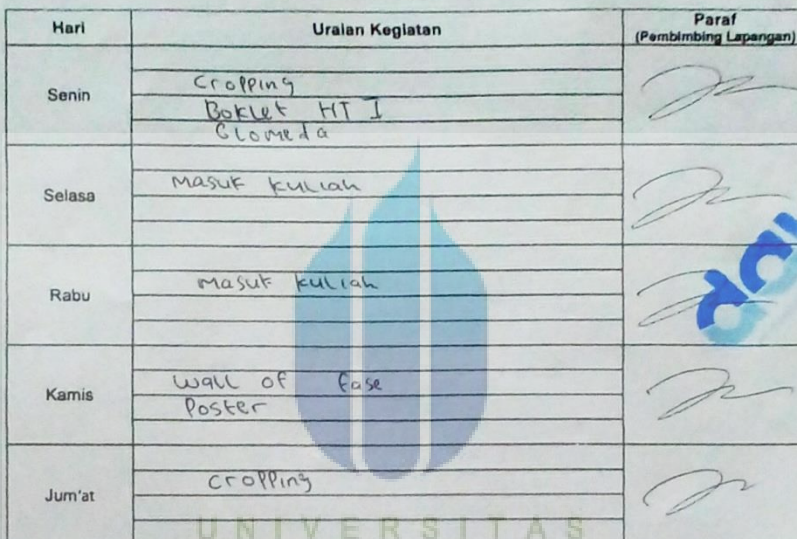 Hari Uraian Kegiatan Paraf
(Pembimbing Lapangan)
Senin
Cropping
Boklet HT I
Glomeda
Selasa
Masuk kuliah
Rabu
Masuk kuliah
Kamis
Wall of fase
Poster
Jum'at
Cropping
UNIVERSITAS